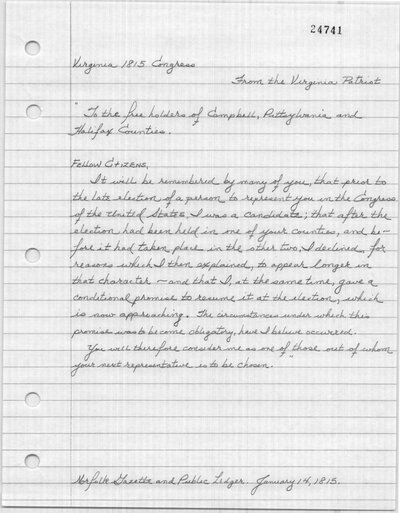 24741
Virginia 1815 Congress
From the Virginia Patriot
"To the free holders of Campbell, Pittsylvania and
Halifax Counties.
Fellow Citizens,
It will be remembered by many of you, that prior to
the late election of a person to represent you in the Congress
of the United States, I was a candidate; that after the
election had been held in one of your counties, and be-
fore it had taken place in the other two, I declined, for
reasons which I then explained, to appear longer in
that character - and that I, at the same time, gave a
conditional promise to resume it at the election, which
is now approaching. The circumstances under which this
promise was to become obligatory, have I believe occurred.
You will therefore consider me as one of those out of whom
your next representative is to be chosen."
Norfolk Gazette and Public Ledger. January 14, 1815.